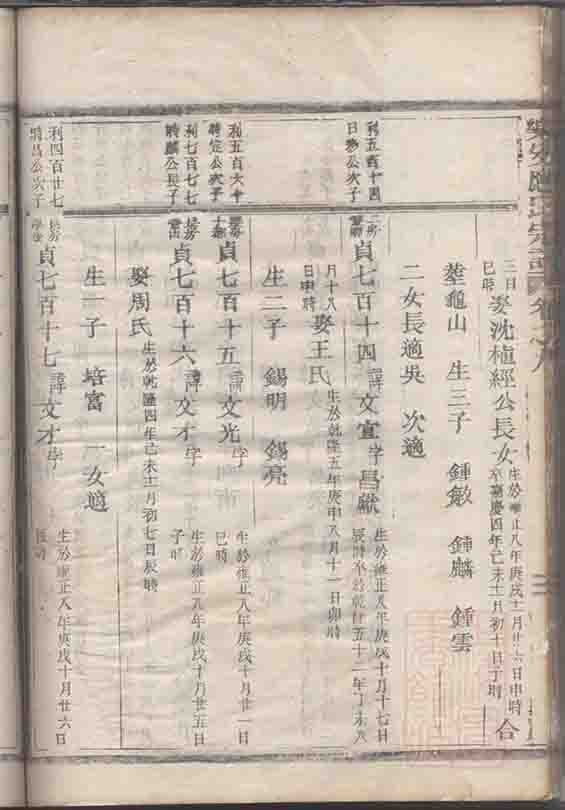 三日巳時 娶沈植經公長女 生於雍正八年庚戌十二月廿六日申時卒嘉慶四年己未十二月初十日子時 合
塟龜山 生三子 鍾敏 鍾麟 鍾雲
二女長適吳 次適
利五百十四日懋公次子
貞七百十四 諱文宣字昌獻 生於雍正八年庚戌十月十七日辰時卒於乾隆五十二年丁未八
月十八日申時 娶王氏 生於乾隆五年庚申八月十一日卯時
生二子 錫明 錫亮
利五百六十聘定公次子
貞七百十五 諱文光字 生於雍正八年庚戌十月廿一日巳時
利七百七七聘麟公長子
貞七百十六 諱文才字 生於雍正八年庚戌十月廿五日子時
娶周氏 生於乾隆四年己未十二月初七日辰時
生一子 培富 一女適
利四百廿七聘昌公次子
貞七百十七 諱文才字 生於雍正八年庚戌十月廿六日